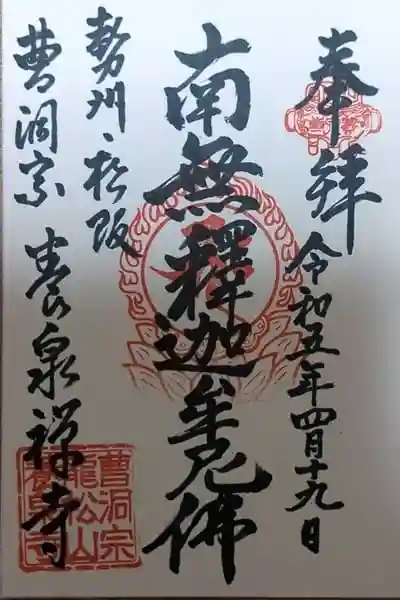 奉拝
令和五年四月十九日
南無釋迦牟尼佛
勢州・松阪
曹洞宗 養泉禅寺
曹洞宗
龍松山
養泉寺